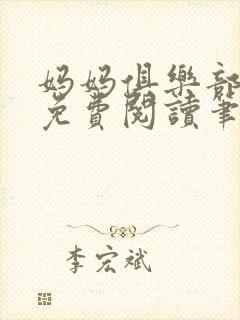 媽媽俱樂部
免費閱讀筆
李宏斌